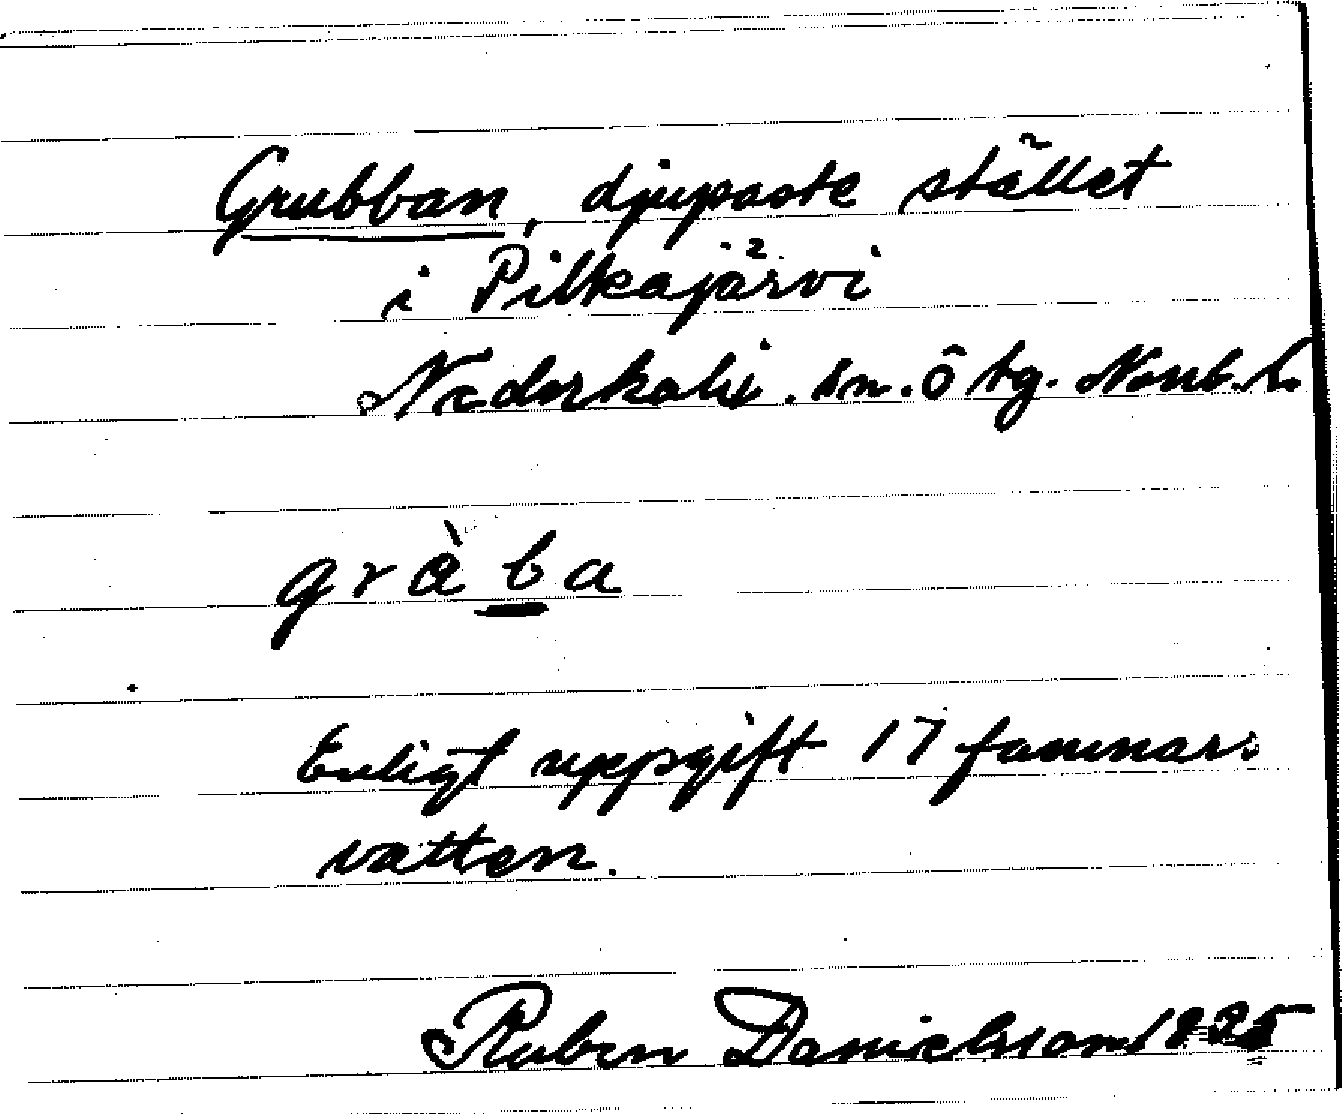 Grubban, djupaste stället
i Pilkajärvi
Nederkalix. sn. Ö bg. Nonb. l.
gràba
Enligt uppgift 17 famnar:s
vatten.
Ruben Danielsson 1935